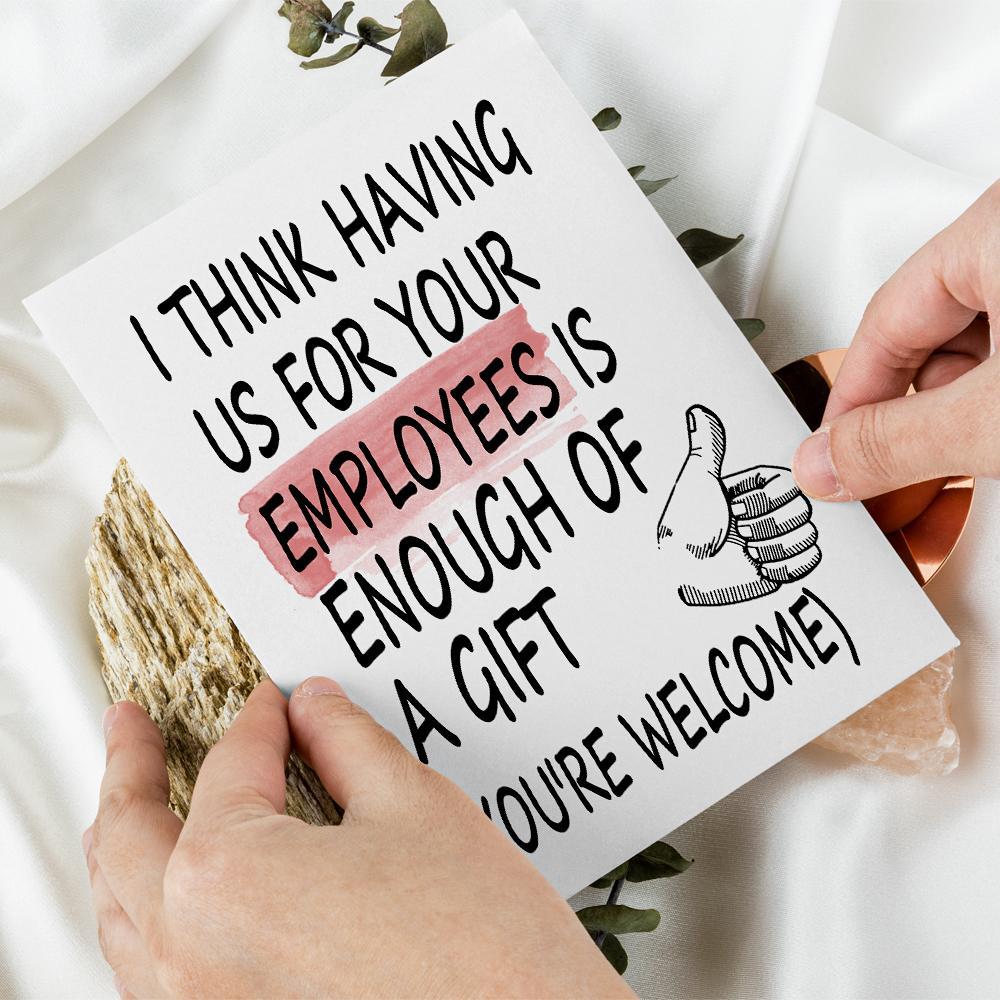 I THINK HAVING
US FOR YOUR
EMPLOYEES IS
ENOUGH OF
A GIFT
YOU'RE WELCOME)